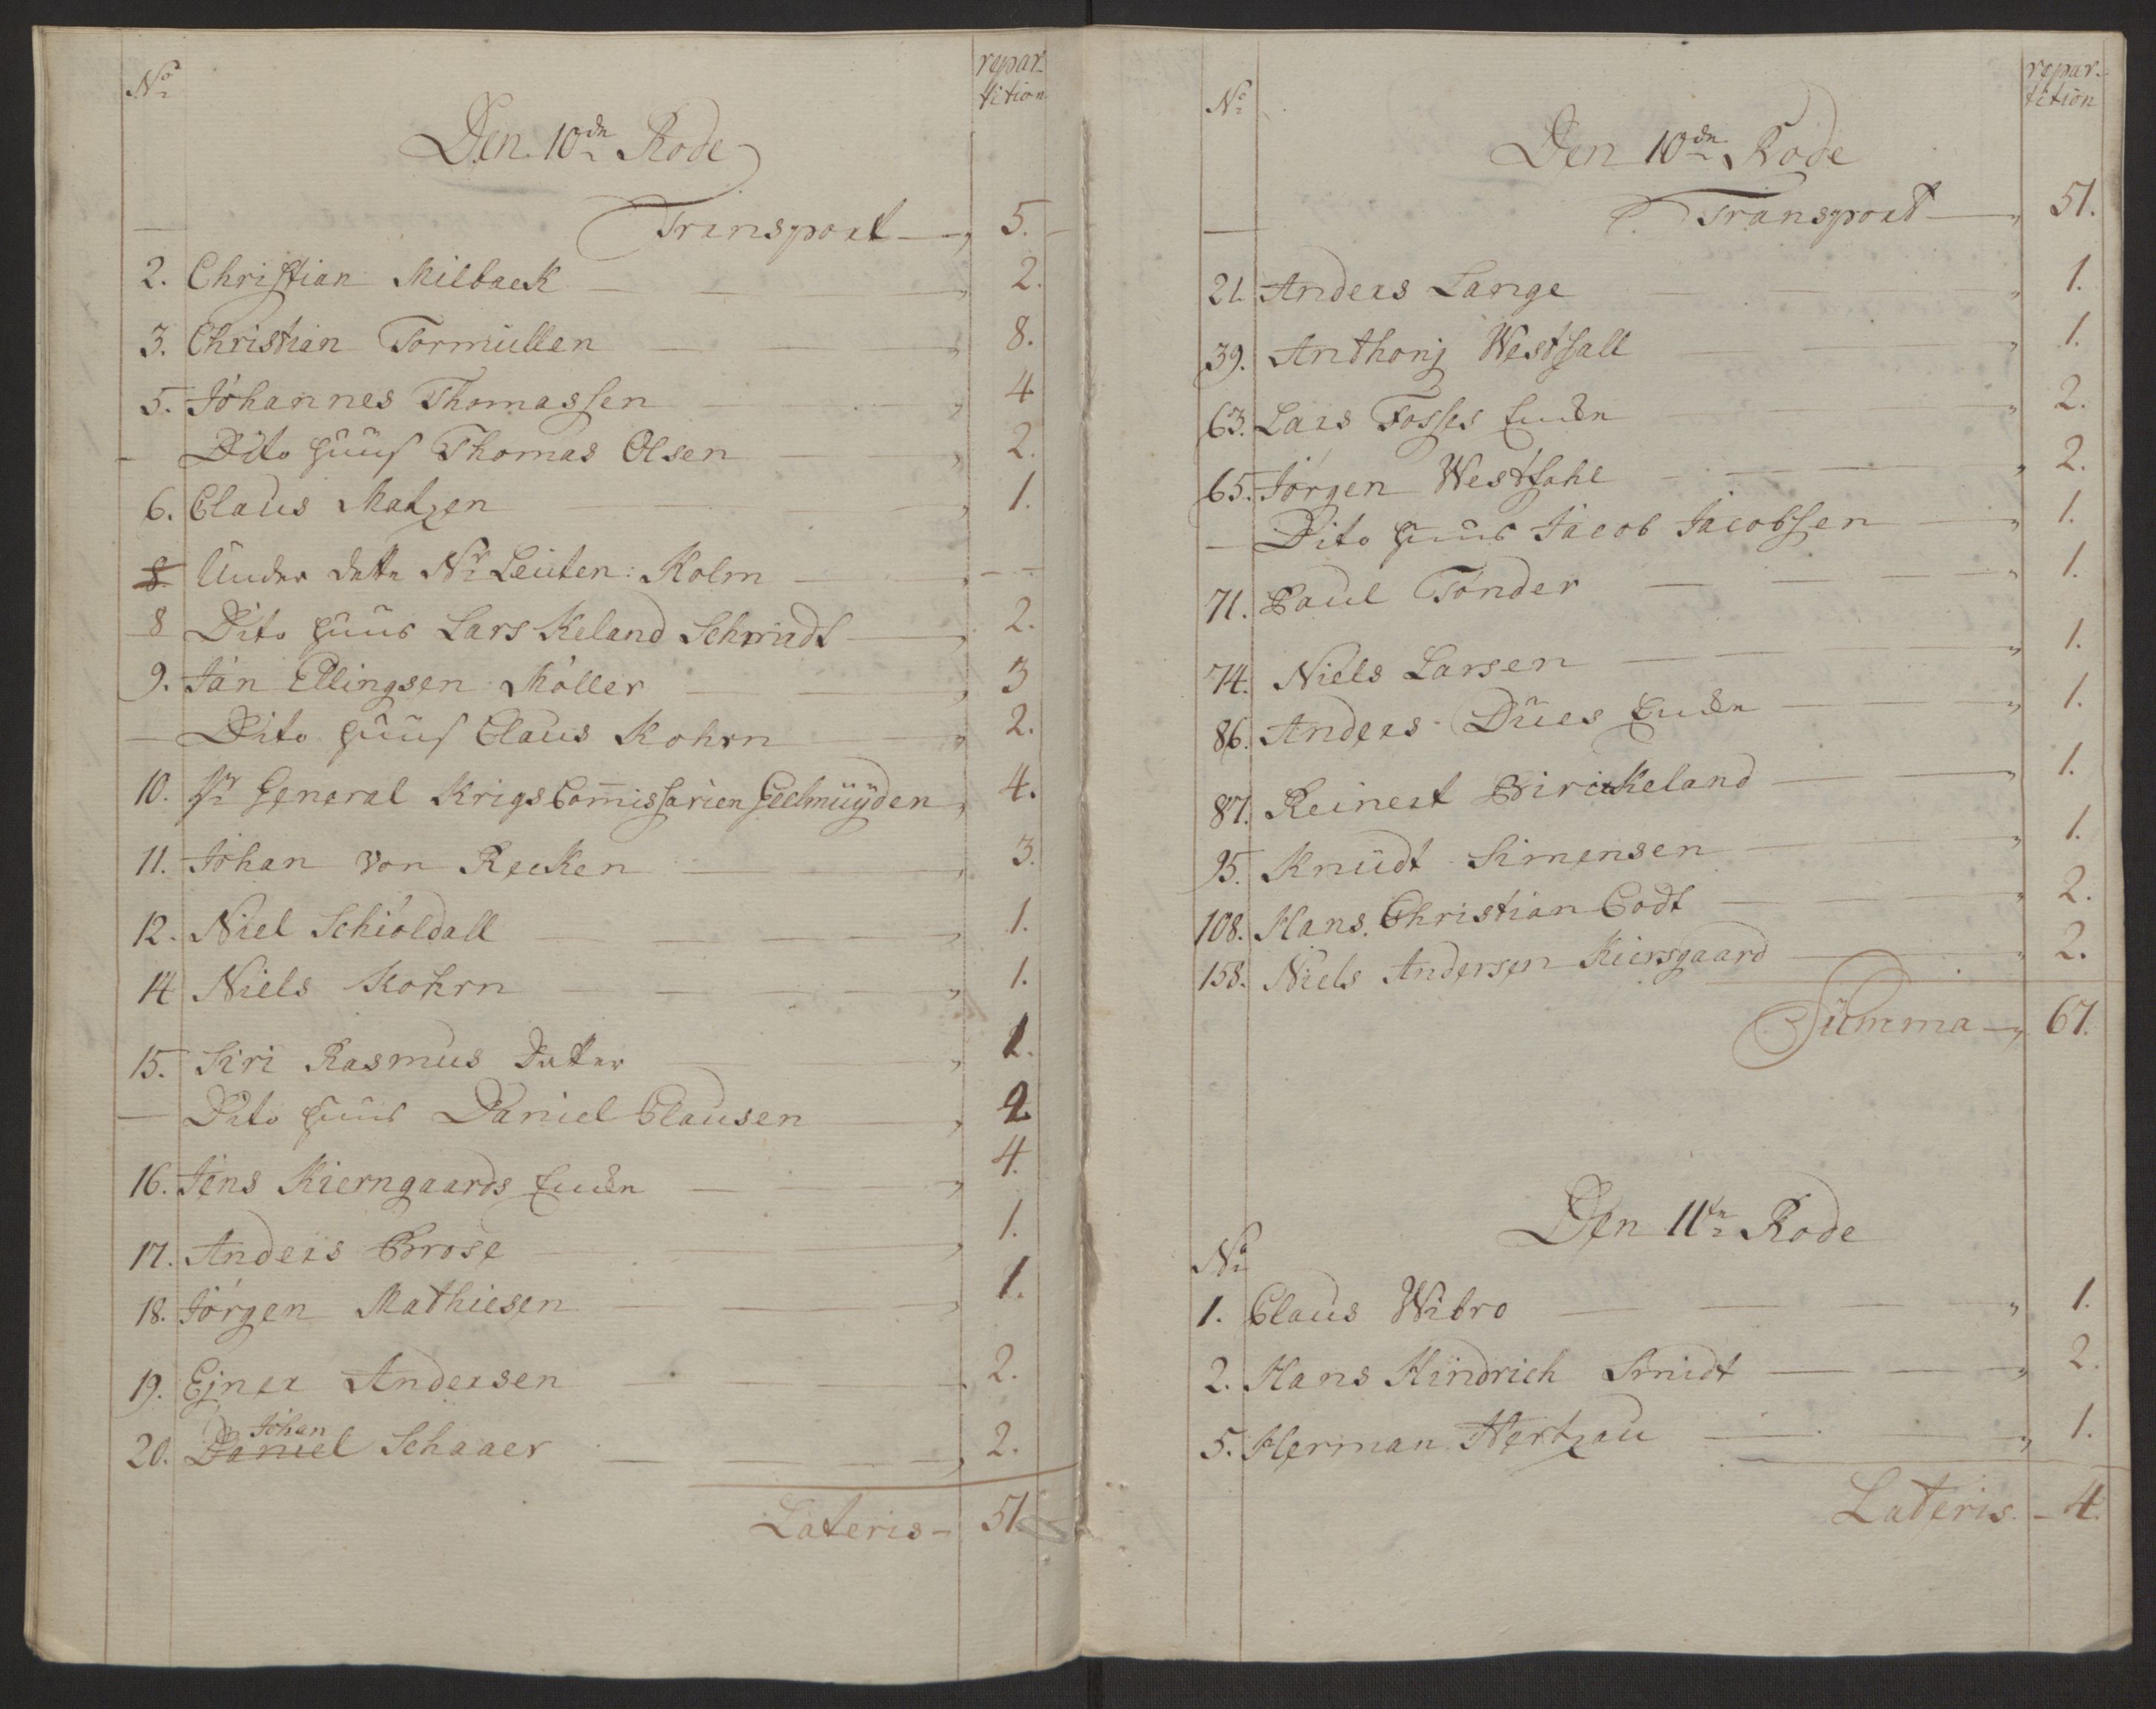 No
repar-
tition
Den 10de Rode
Transport 5.
2. Christian Milback 2.
3. Christian Tormüllen 8.
5. Johannes Thomassen 4
- Dito huus Thomas Olsen 2.
6. Claus Matzen 1.
8 Under dette Nr Leuten: Kolm
8 Dito huus Lars Keland Schmidt 2.
9. Jan Ellingsen Möller 3
- Dito huus Claus Kohrn 2.
10. Hr General Krigs Commissarien Geelmüyden 4.
11. Johan von Recken 3.
12. Niel Schiöldall 1.
14 Niels Kohrn 1.
15. Siri Rasmus Datter 1.
- Dito huus Daniel Clausen 2
16. Jens Kierngaards Encke 4.
17. Anders Brose 1.
18. Jörgen Mathiesen 1.
19. Ejner Andersen 2.
Johan
20. Daniel Schaaer 2.
Lateris - 51
No
repar-
tition
Den 10de Rode
Transport 51.
21. Anders Lange 1.
39. Anthonj Westfall 1.
63. Lars Fosses Encke 2.
65. Jörgen Westfahl 2.
- Dito huus Jacob Jacobsen 1.
71. Paul Tönder 1.
74. Niels Larsen 1.
86. Anders Dües Encke 1.
87. Reinert Birckeland 1.
95. Knüdt Simensen 1.
108. Hans Christian Codt 2.
158. Niels Andersen Kiersgaard 2.
Summa 67.
Den 11te Rode
No
1. Claus Wibro 1.
2. Hans Hindrich Smidt 2.
5. Herman Hertzau 1.
Lateris. - 4.